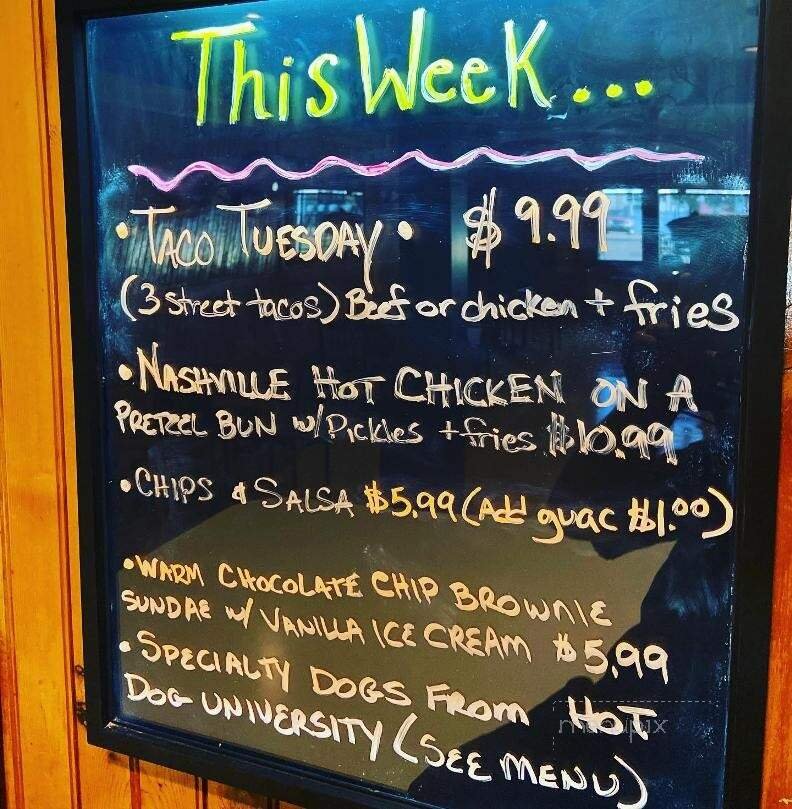 This Week...
• TACO TUESDAY • $9.99
(3 street tacos) Beef or chicken + fries
• NASHVILLE HOT CHICKEN ON A
PRETZEL BUN w/Pickles + fries $10.99
• CHIPS & SALSA $5.99 (Add guac $1.00)
• WARM CHOCOLATE CHIP BROWNIE
SUNDAE w/ VANILLA ICE CREAM $5.99
• SPECIALTY DOGS FROM HOT
DOG UNIVERSITY (SEE MENU)